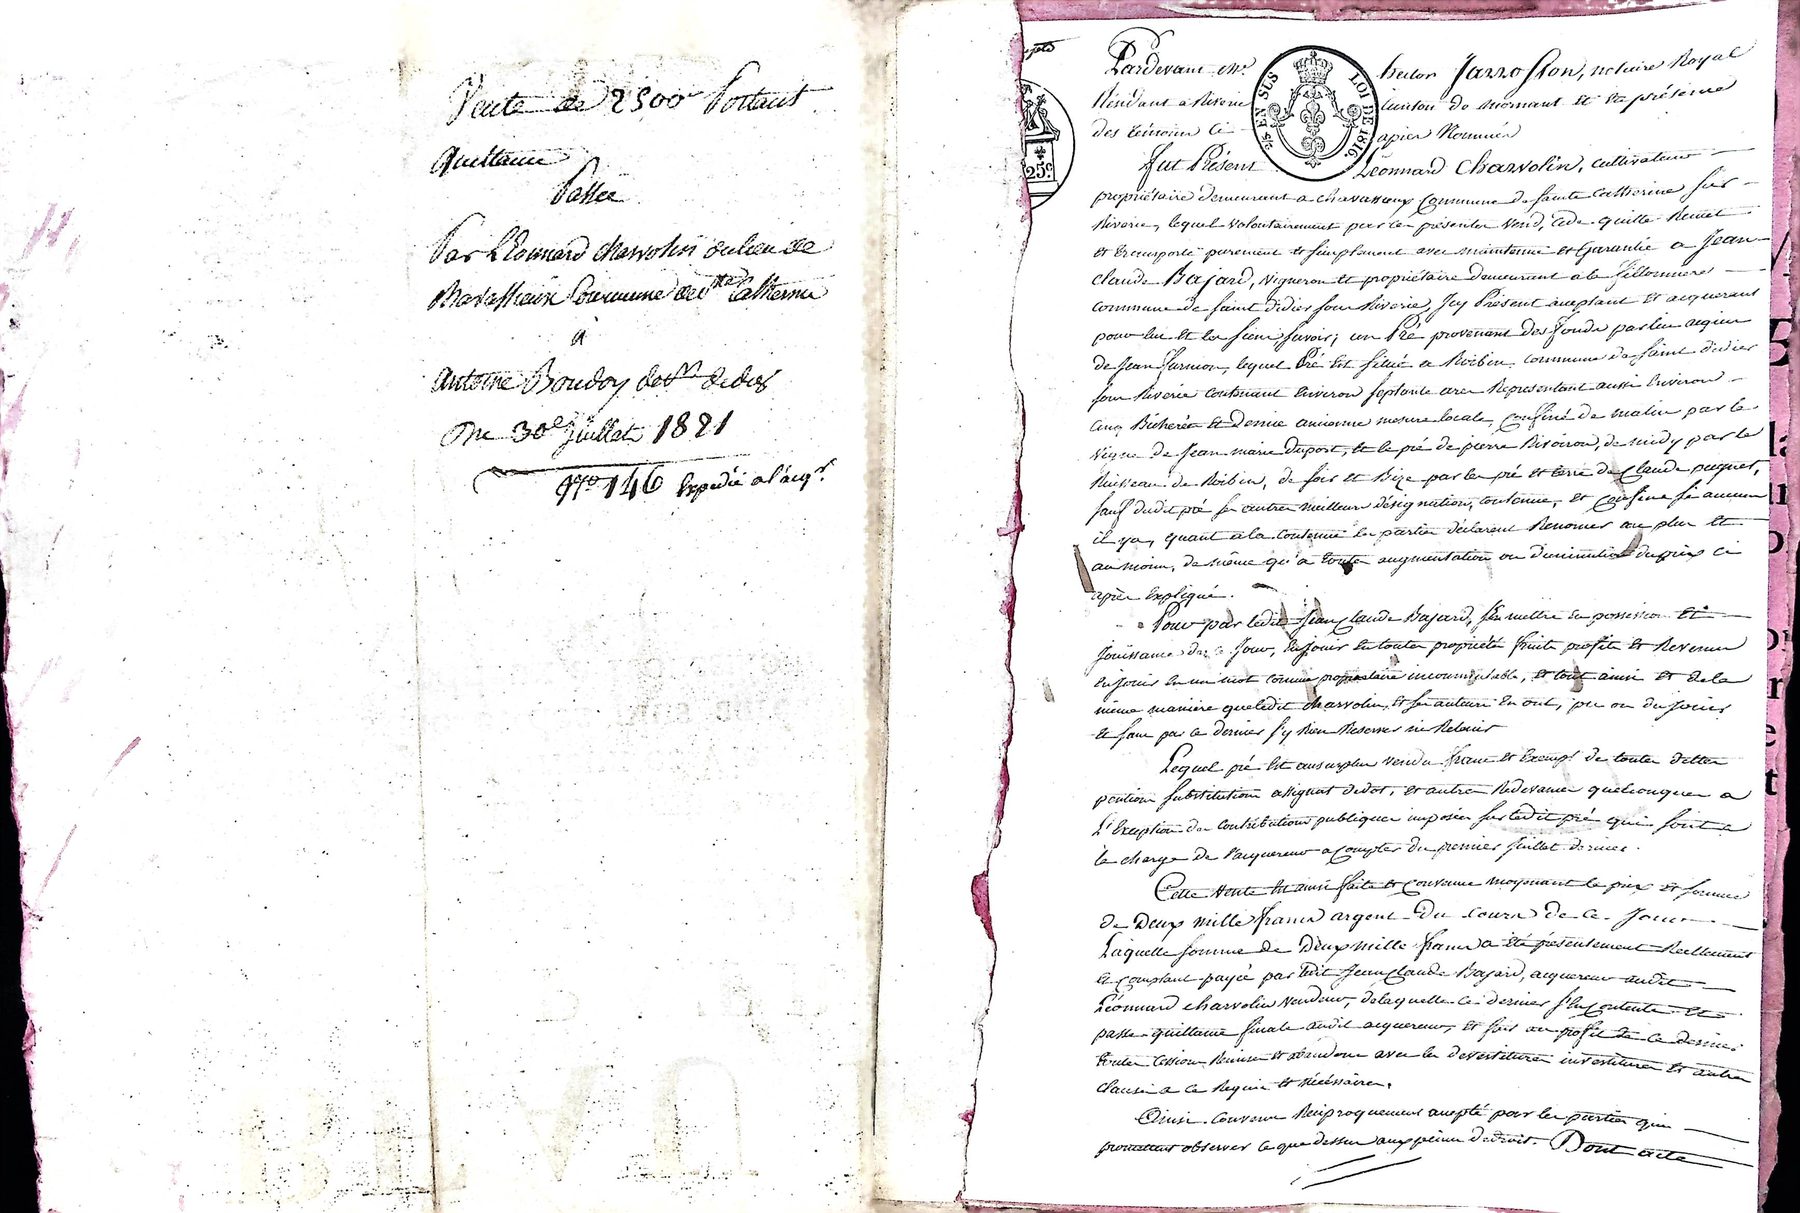 Vente de 2500 Portant
Quittance
Passée
Par Léonnard charvolin du lieu de
Commune de Ste Catherine
a
Antoine Boudoy de St didier
Du 30e Juillet 1821
No 146 Expédié a l'acqr.
25c
75c EN SUS LOI DE 1816.
Pardevant Me. hector Jarrosson, notaire Royal
Résidant a Riverie canton de mornant Et En présence
des témoins ci apres Nommés
Fut Présent Léonnard Charvolin, cultivateur
propriétaire demeurant a chavassieux Commune de Sainte Catherine sur
Riverie, lequel volontairement par ces présentes vend, cède quitte Remet
et transporte purement et simplement avec maintenue et Garantie a Jean
claude Bajard, vigneron et propriétaire demeurant a la fillonniere
commune de saint didier sous Riverie, Icy Présent aceptant Et acquerant
pour lui Et les siens savoir; un Pré provenant des fonds parlui acquis
de Jean lequel Pré Est situé a Roibin, commune de saint didier
sous Riverie contenant Environ septante ares Représentant aussi Environ
cinq Bicherées Et demie ancienne mesure locale, confiné de matin par la
vigne de Jean marie duport, et le pré de pierre Rivoiron, de midy par le
Ruisseau de Roibin, de soir et Bize par les pré et terre de Claude paquet,
sauf dudit pré ses autres meilleurs désignation, contenue, et Confins si aucuns
il ya, quant a la contenue les parties déclarent Renoncer au plus Et
au moins, de même qu'a toute augmentation ou diminution du prix ci
après Expliqué.
Pour par ledit Jean Claude Bajard, s'En mettre En possession Et
Jouissance des ce Jour, En Jouir En toutes propriété fruits profits Et Revenus
En Jouir En un mot comme propriétaire incommutable, Et tout ainsi Et de la
même manière que ledit charvolin, Et ses auteurs En ont, pu ou du Jouir
Et sans par ce dernier s'y Rien Reserver ni Retenir
Lequel pré Est ausurplus vendu franc et Exempt de toutes dettes
pentions substitutions assignat de dot, et autres Redevances quelconques a
L'Exception des contributions publiques imposées sur ledit pré qui sont a
la charge de l'acquereur a compter du premier Juillet dernier.
Cette Vente Est ainsi faite et Convenue moyenant le prix et somme
de Deux mille francs argent du cours de ce Jour
Laquelle somme de Deux mille francs a été présentement Reellement
Et Comptant payée par ledit Jean Claude Bajard, acquereur audit
Léonnard charvolin Vendeur, de laquelle ce dernier s'En Contente Et
passe quittance finale audit acquereur, Et fait au profit de ce dernier
toutes Cession Remise et abandon avec les devestitures investitures Et autres
clauses a ce Requises Et nécéssaires.
Ainsi Convenu Reciproquement acepté par les parties qui
promettent observer ce que dessus aux peines de droit. Dont acte